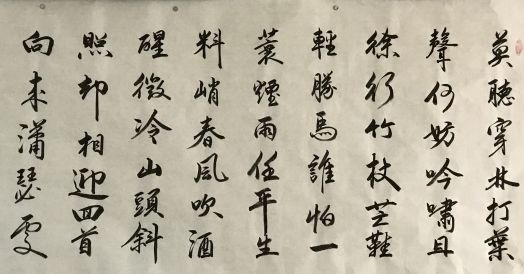 莫聽穿林打葉
聲何妨吟嘯且
徐行竹杖芒鞋
輕勝馬誰怕一
蓑煙雨任平生
料峭春風吹酒
醒微冷山頭斜
照却相迎回首
向來瀟瑟處